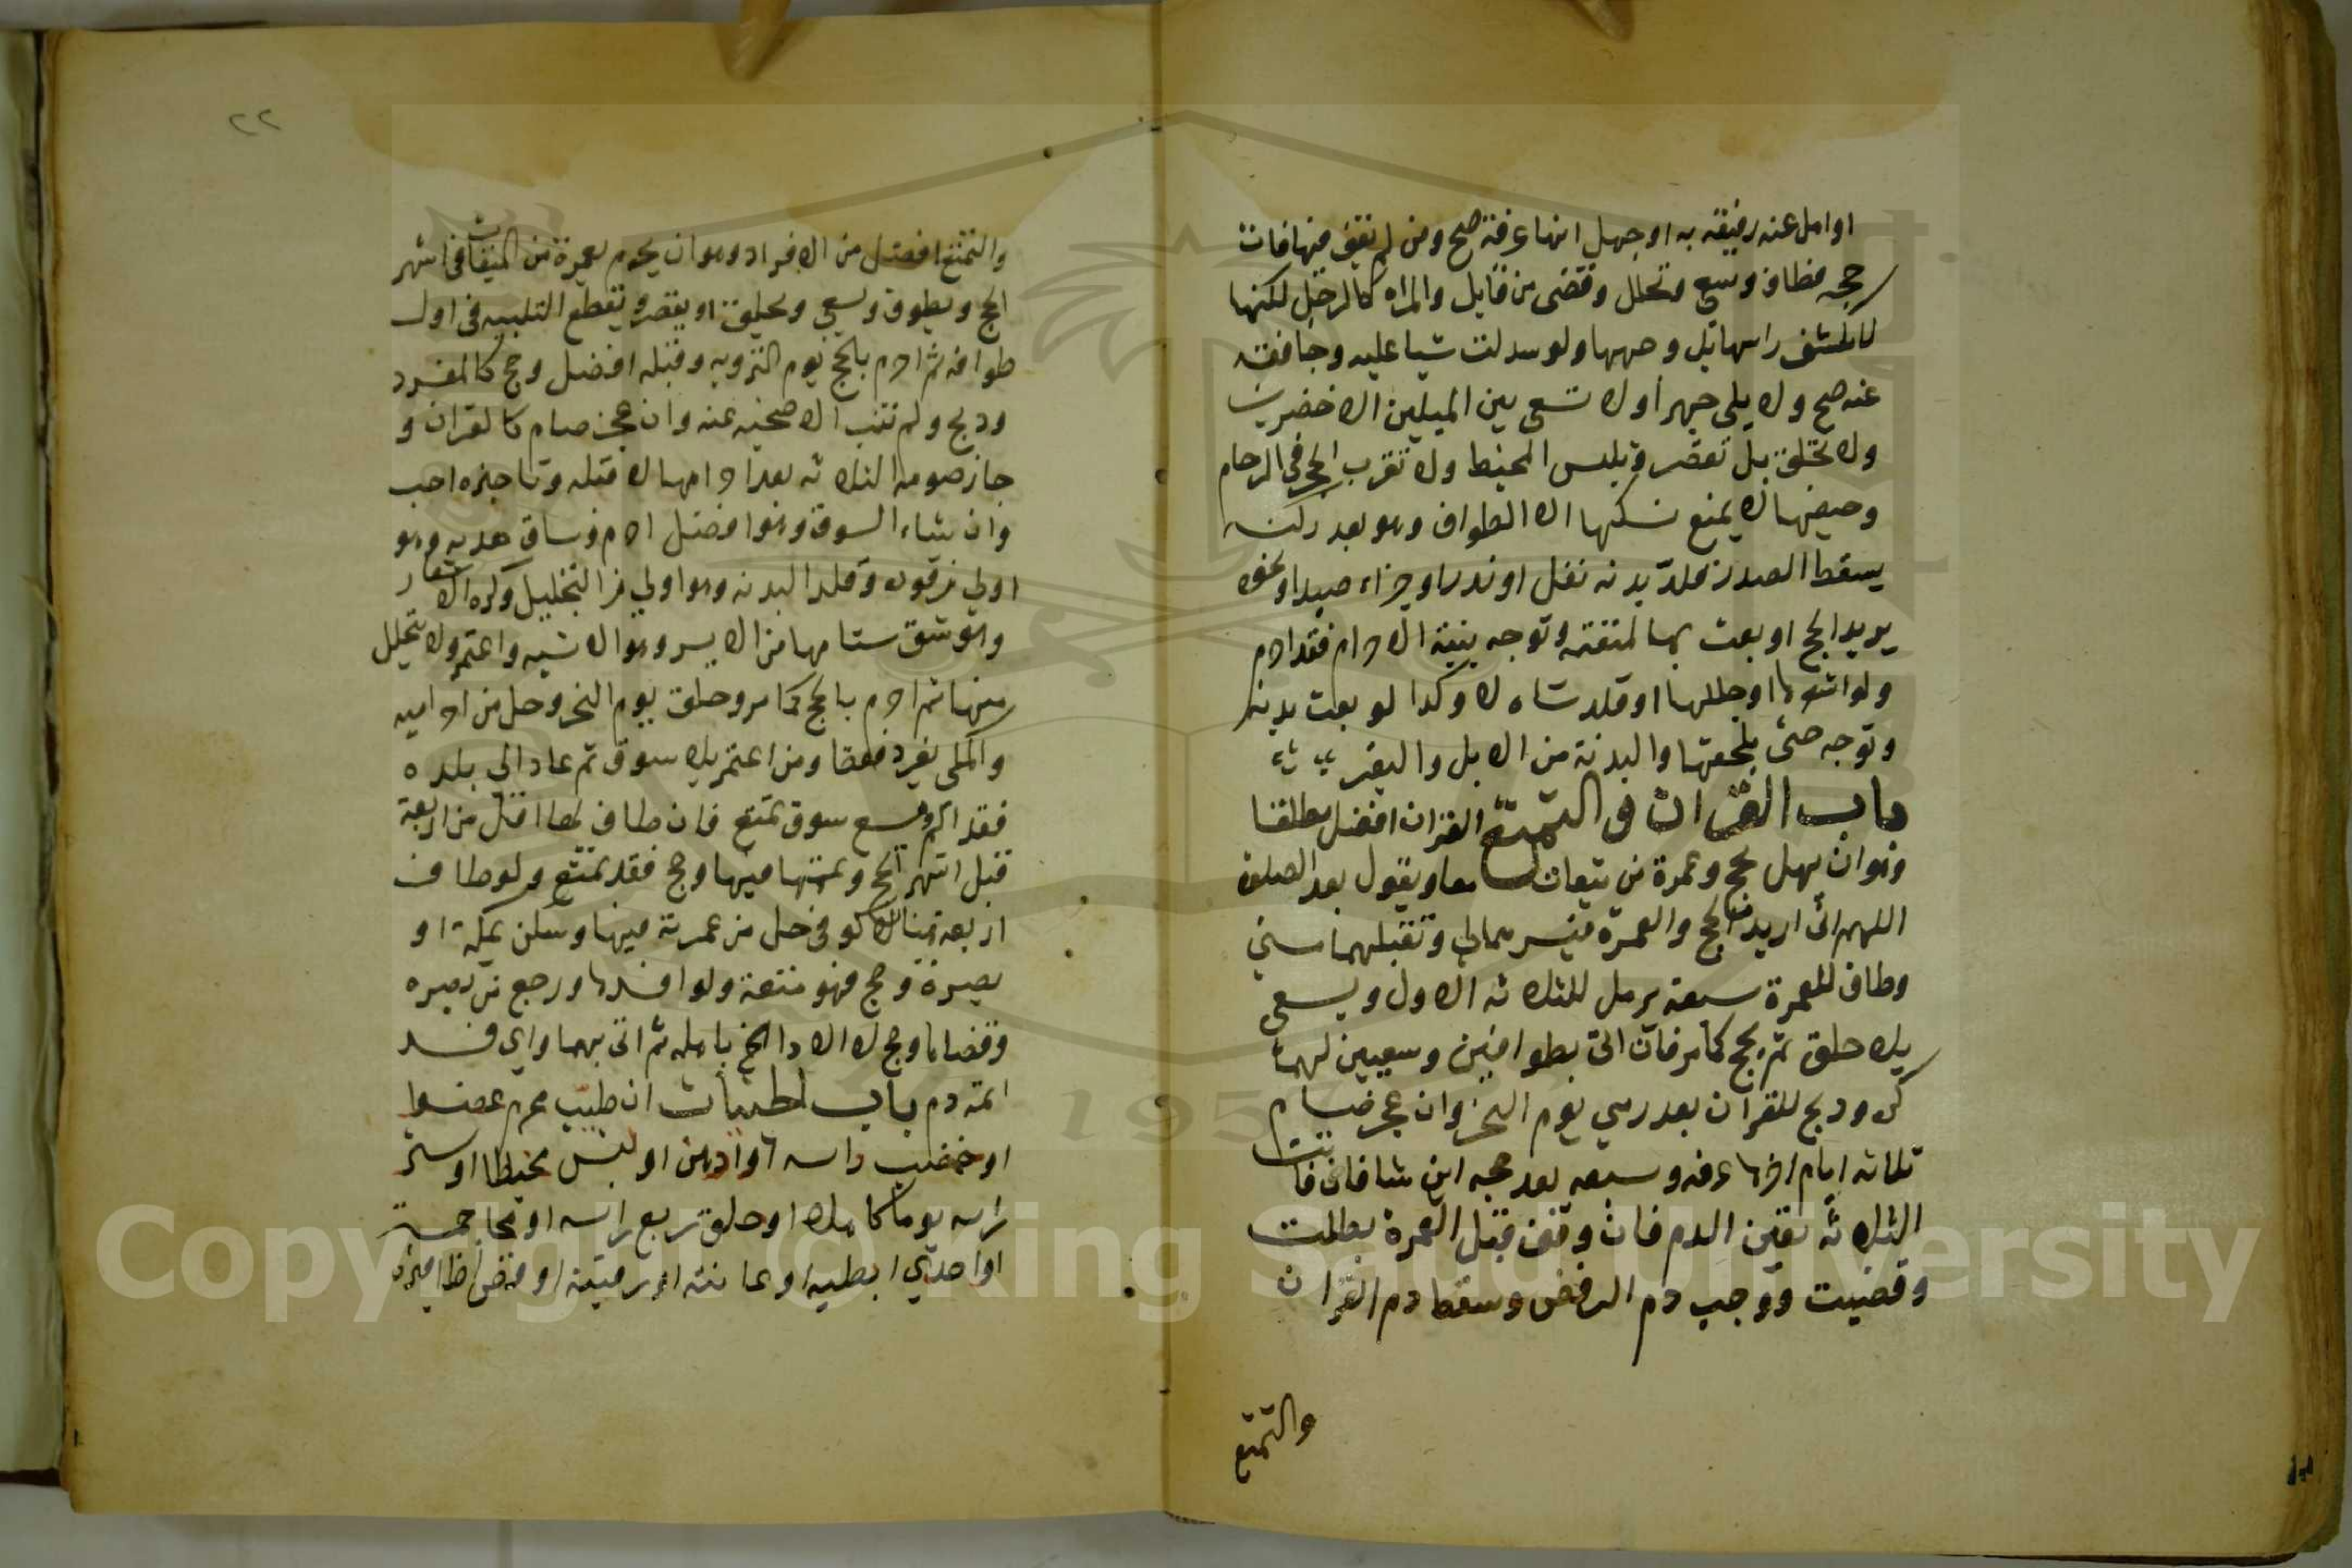 او اهل عنه رفيقه به او جهل انها عرفة صح ومن لم يقف فيها فات
حجه فطاف وسعي وتحلل وقضى من قابل والمراه كالرجل لكنها
لا تكشف راسها بل وجهها ولو سدلت شيا عليه وجافته
عنه صح ولا يلبي جهرا ولا تسعى بين الميلين الاخضرين
ولا تحلق بل تقصر وتلبس المخيط ولا تقرب الحجر في الزحام
وحيضها لا يمنع نسكها الا الطواف وهو بعد ركنه
يسقط الصدر من قلد بدنه نفل او نذر او جزاء صيد او نحوه
يريد الحج او بعث بها لمتعته وتوجه بنية الاحرام فقد احرم
ولو اشعرها او جللها او قلد شاه لا وكذا لو بعث بدنه
وتوجه حتى يلحقها والبدنة من الابل والبقر
باب القران والتمتع القران افضل مطلقا
وهو ان يهل بحج وعمرة من ميقات معا ويقول بعد الصلوة
اللهم اني اريد الحج والعمرة فيسرهما لي وتقبلهما مني
وطاف للعمرة سبعة يرمل للثلاثه الاول ويسعى
بلا حلق ثم يحج كما مر فان اتى بطوافين وسعيين لهما
كره وذبح للقران بعد رمي يوم النحر وان عجز صام
ثلاثه ايام اخرها عرفه وسبعه بعد حجه اين شا فان فاتت
الثلاثه تعين الدم فان وقف قبل العمرة بطلت
وقضيت ووجب دم الرفض وسقط دم القران
والتمتع
٢٢
والتمتع افضل من الافراد وهو ان يحرم بعمرة من الميقات في اشهر
الحج ويطوف ويسعي ويحلق او يقصر ويقطع التلبيه في اول
طوافه ثم احرم بالحج يوم الترويه وقبله افضل وحج كالمفرد
وذبح ولم تنب الاضحيه عنه وان عجز صام كالقران و
جاز صوم الثلاثه بعد احرامها لا قبله وتاخيره احب
وان شاء السوق وهو افضل احرم وساق هديه وهو
اولي من قوده وقلد البدنه وهو اولي من التجليل وكره الاشعار
وهو شق سنامها من الايسر وهو الاشبه واعتمر ولا يتحلل
منها ثم احرم بالحج كما مر وحلق يوم النحر وحل من احراميه
والمكي يفرد فقط ومن اعتمر بلا سوق ثم عاد الي بلده
فقد الم ومع سوق تمتع فان طاف لها اقل من اربعة
قبل اشهر الحج وتممها فيها وحج فقد تمتع ولو طاف
اربعة قبلها لا كوفي حل من عمرته فيها وسكن بمكة او
بصرة وحج فهو متمتع ولو افسدها ورجع من بصره
وقضاها وحج لا الا اذا الم باهله ثم اتى بهما واي فسد
اتمه دم باب الجنايات ان طيب محرم عضوا
او خضب راسه او ادهن او لبس مخيطا او ستر
راسه يوما كاملا او حلق ربع راسه او محاجمه
او احدي ابطيه او عانته او رقبته او قص اظافيره